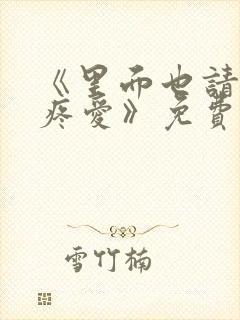 《里面也請
疼愛》免費
雪竹楠